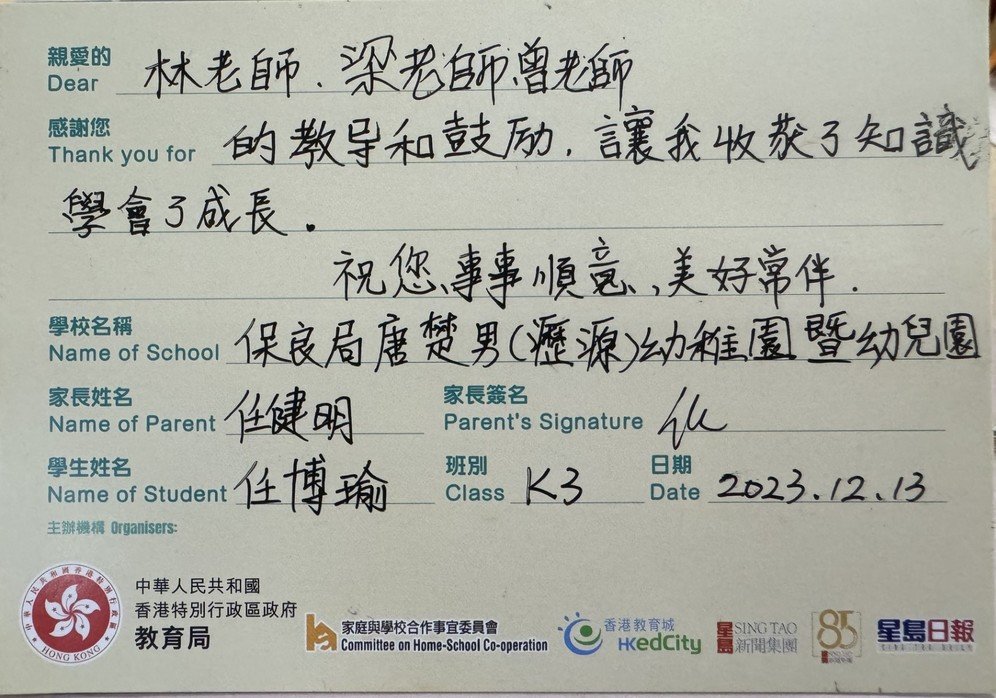 親愛的 林老師、梁老師、曾老師
Dear
感謝您 的教导和鼓励，讓我收获了知識
Thank you for
學會了成長。
祝您、事事順意，美好常伴.
學校名稱
Name of School 保良局唐楚男(瀝源)幼稚園暨幼兒園
家長姓名 家長簽名
Name of Parent 任健明 Parent's Signature
學生姓名 班別 日期
Name of Student 任博瑜 Class K3 Date 2023.12.13
主辦機構 Organisers:
中華人民共和國
香港特別行政區政府
教育局
中華人民共和國香港特別行政區
HONG KONG
家庭與學校合作事宜委員會
Committee on Home-School Co-operation
香港教育城
HKedCity
星島 SING TAO
新聞集團
85
星島日報